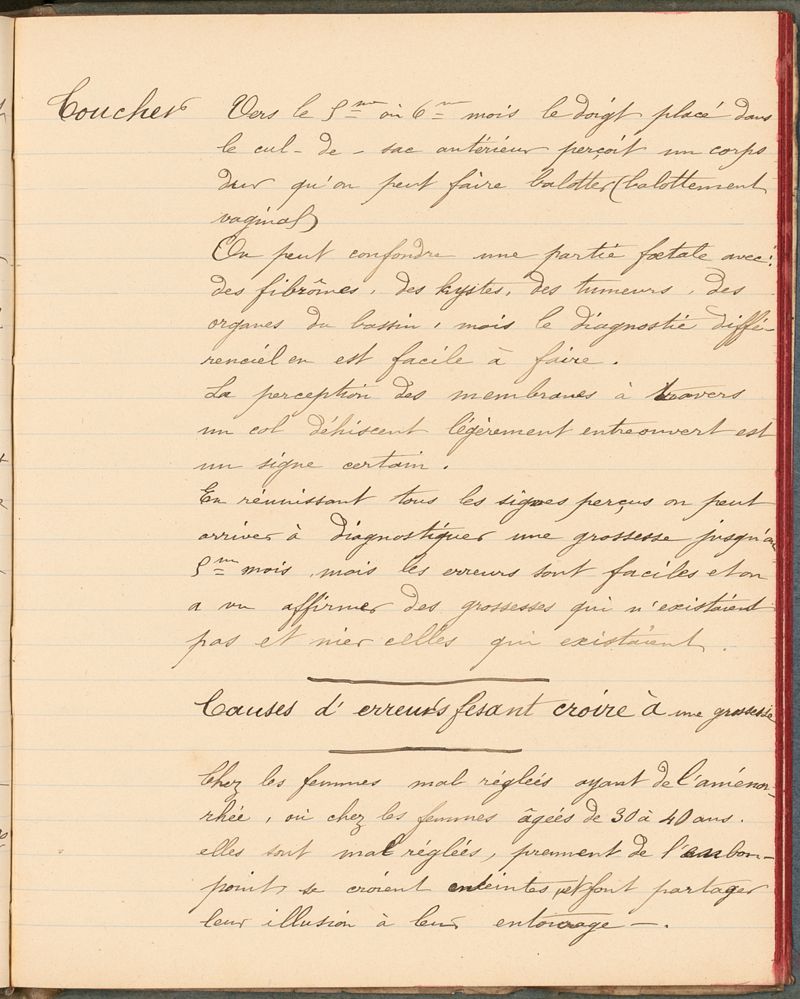 Toucher Vers le 5me où 6me mois le doigt placé dans
le cul-de-sac antérieur perçoit un corps
dur qu'on peut faire balotter (balottement
vaginal)
On peut confondre une partie fœtale avec:
des fibrômes, des kystes, des tumeurs, des
organes du bassin, mais le diagnostic diffé-
renciel en est facile à faire.
La perception des membranes à travers
un col déhiscent légèrement entreouvert est
un signe certain.
En réunissant tous les signes perçus on peut
arriver à diagnostiquer une grossesse jusqu'au
5me mois, mais les erreurs sont faciles et on
a vu affirmer des grossesses qui n'existaient
pas et nier celles qui existaient.
Causes d'erreurs fesant croire à une grossesse
Chez les femmes mal réglées ayant de l'aménor-
rhée, où chez les femmes âgées de 30 à 40 ans.
elles sont mal réglées, prennent de l'embon-
point, se croient enceintes, et font partager
leur illusion à leur entourage —.